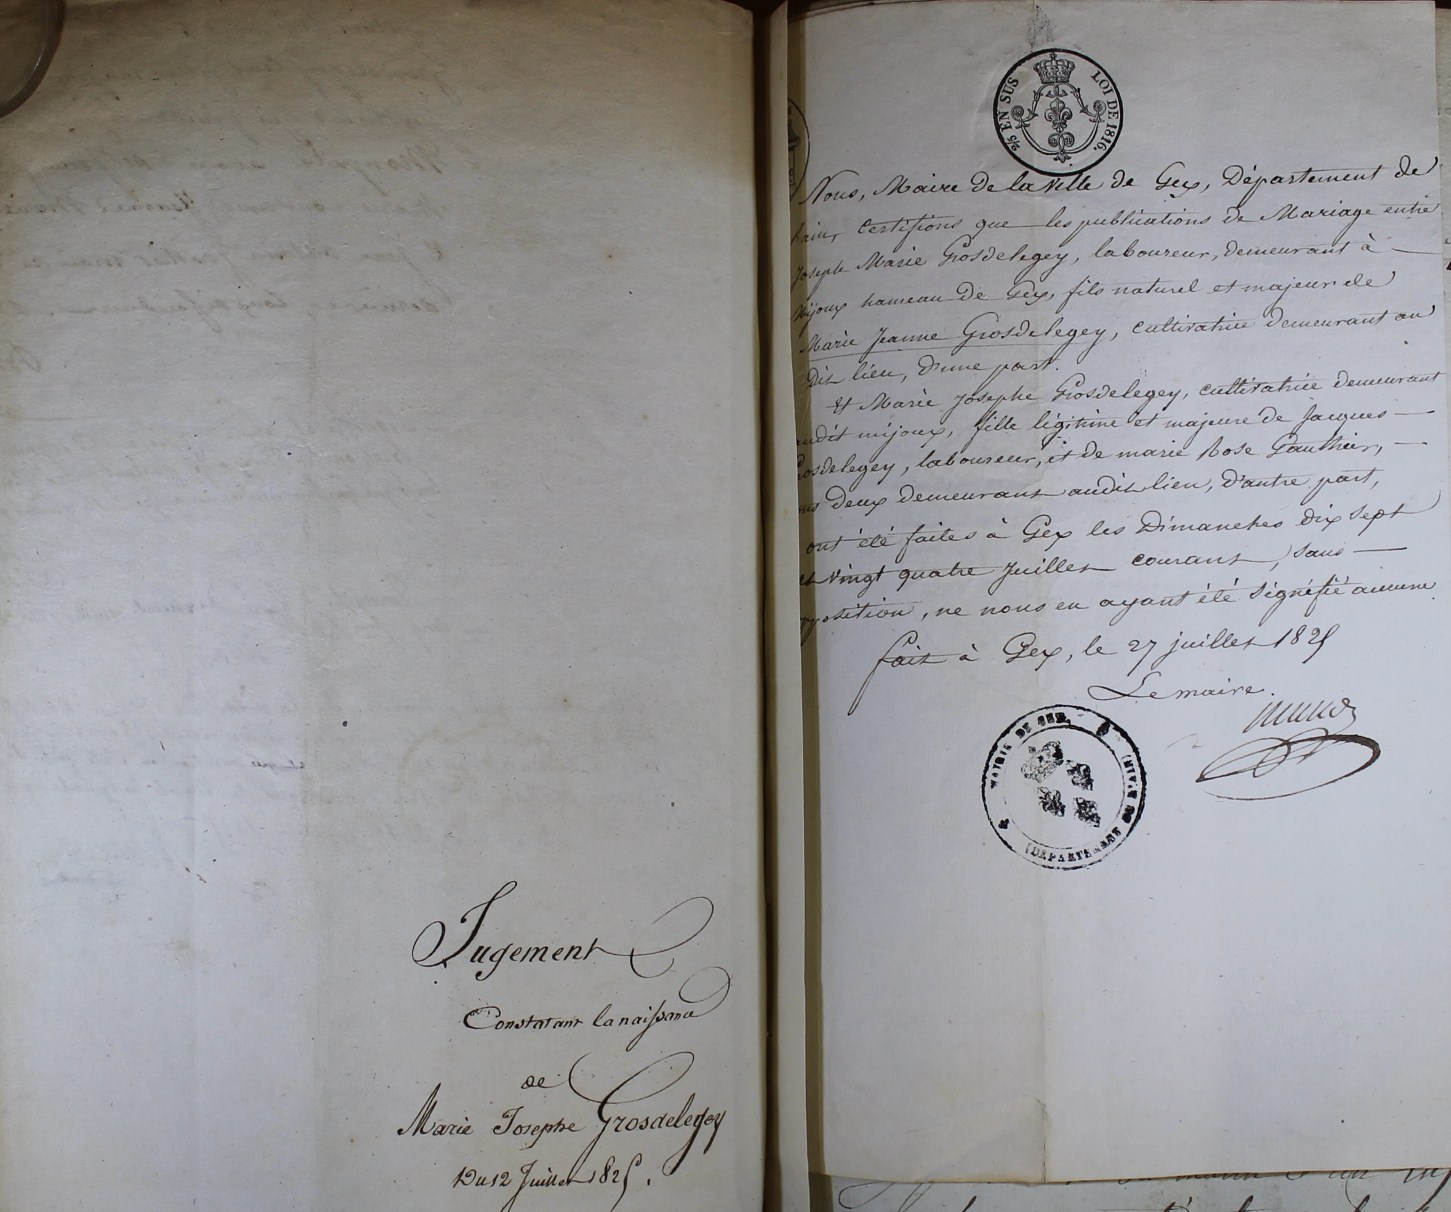 Jugement
Constatant la naissance
de
Marie Josephe Grosdelegey
Du 12 Juillet 1825.
2/5 EN SUS LOI DE 1816.
Nous, Maire de la Ville de Gex, Département de
l'ain, Certifions que les publications de Mariage entre
Joseph Marie Grosdelegey, laboureur, demeurant à
Mijoux hameau de Gex, fils naturel et majeur de
Marie Jeanne Grosdelegey, cultivatrice demeurant au
dit lieu, d'une part.
Et Marie Josephe Grosdelegey, cultivatrice demeurant
audit mijoux, fille légitime et majeure de Jacques
Grosdelegey, laboureur, et de marie Rose Gauthier,
deux demeurant audit lieu, d'autre part,
ont été faites à Gex les Dimanches dix sept
et vingt quatre Juillet courant, sans
opposition, ne nous en ayant été signifié aucune.
fait à Gex, le 27 juillet 1825
Le maire.
MAIRIE DE GEX
DÉPARTEMENT